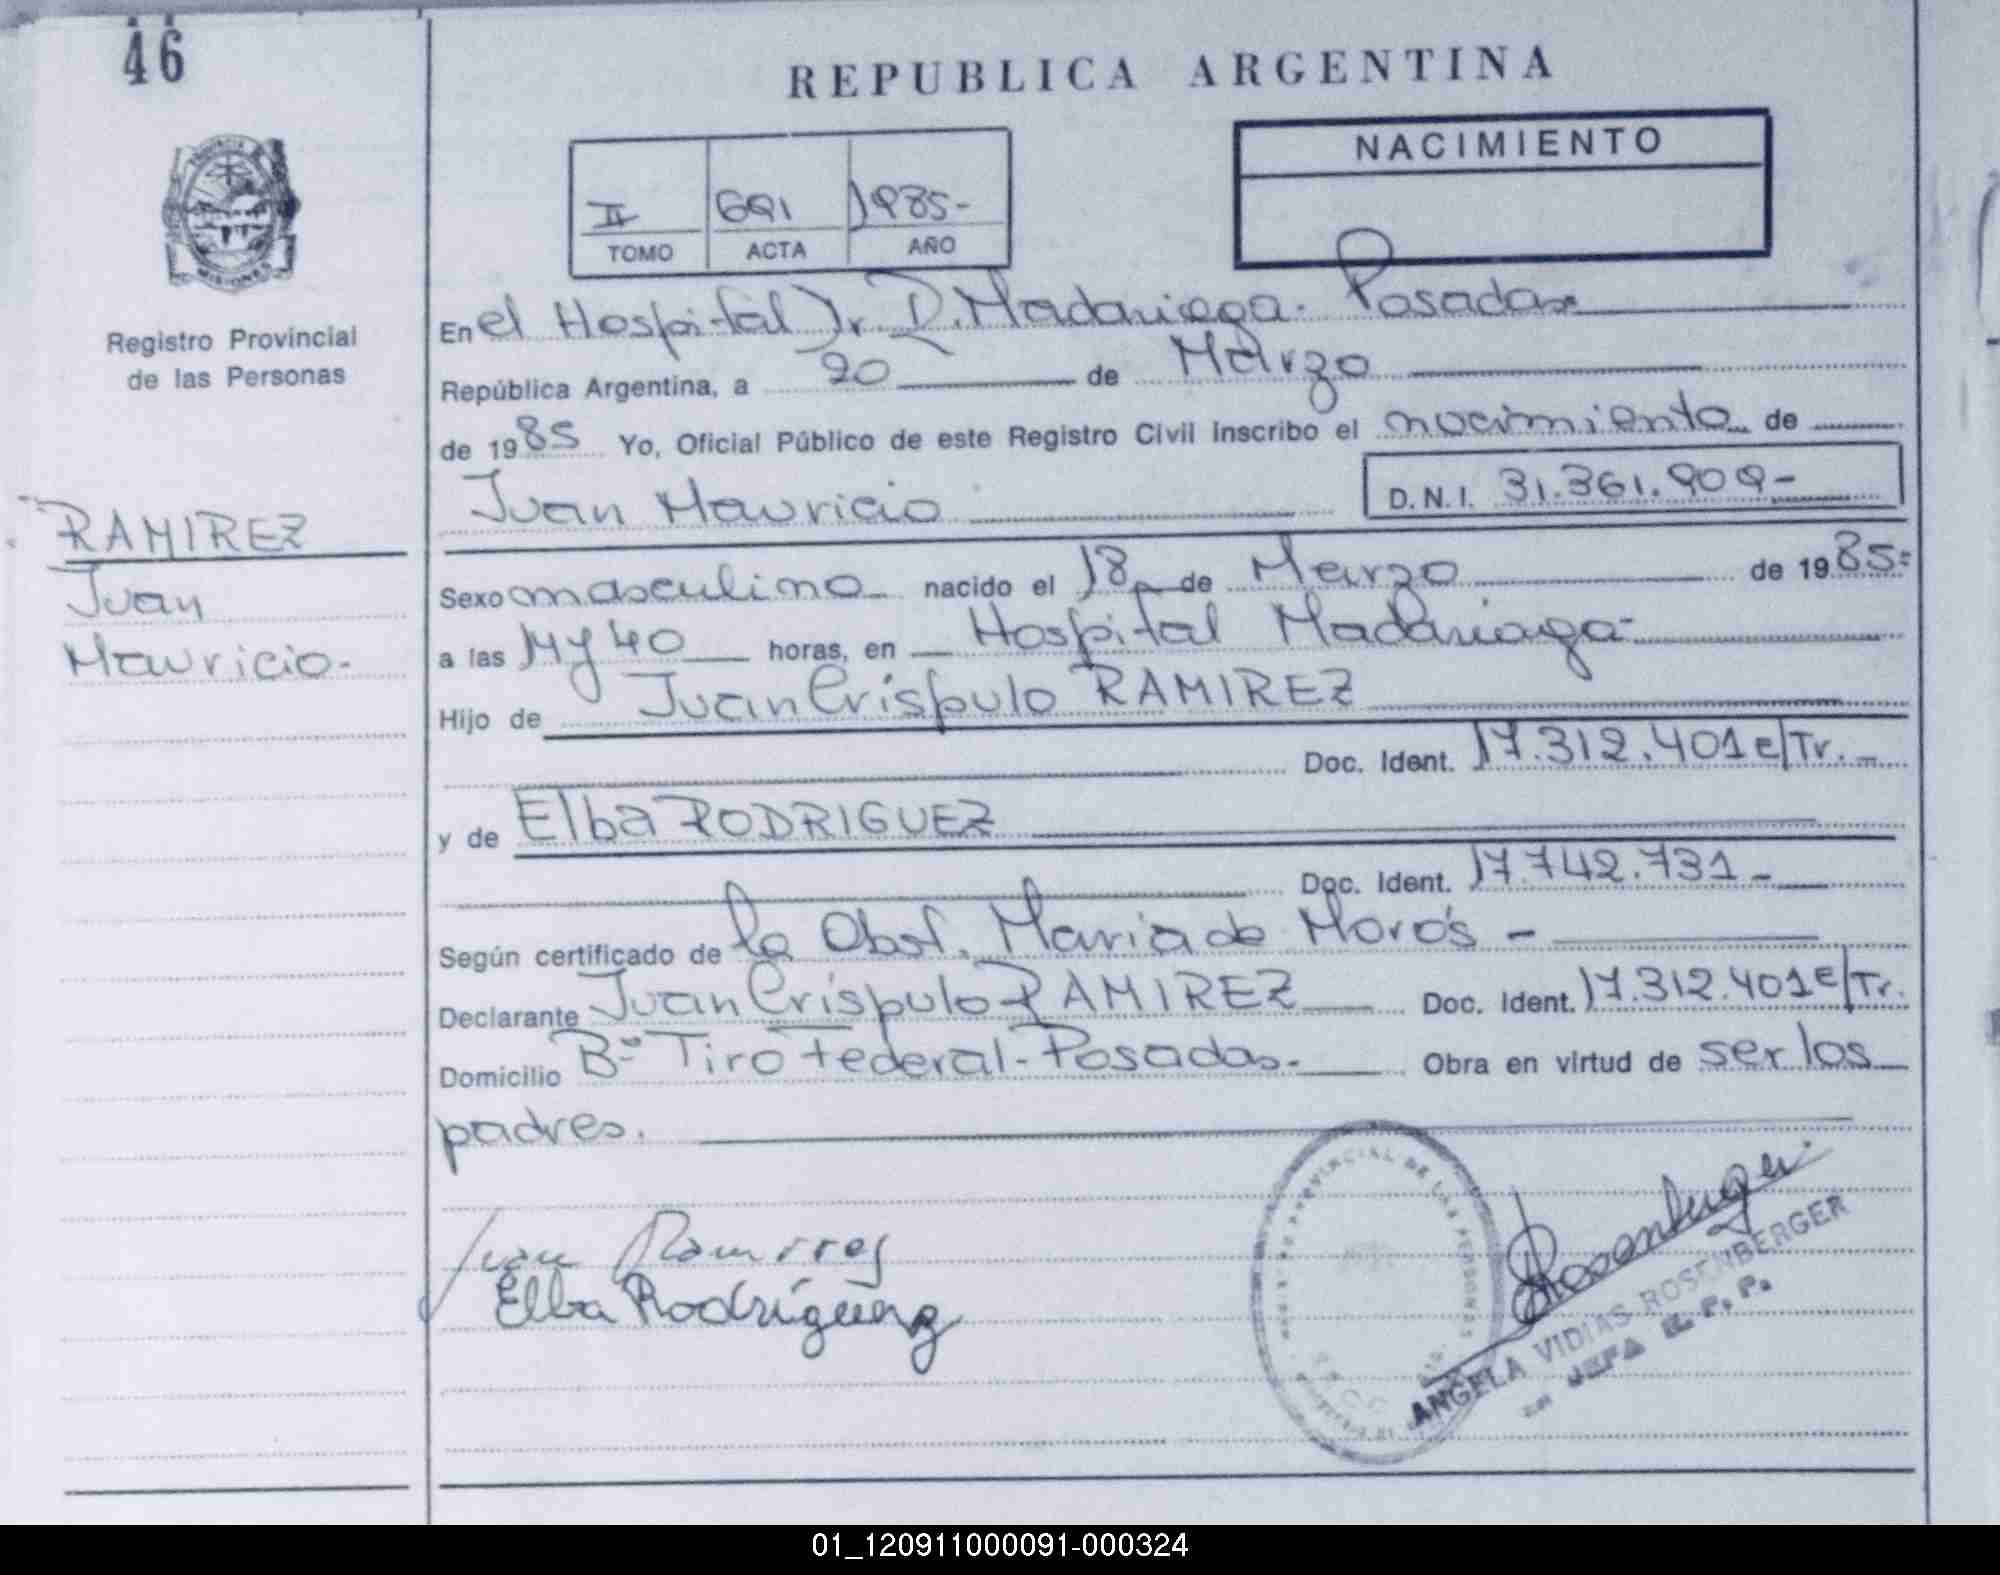 46
REPUBLICA ARGENTINA
NACIMIENTO
II 691 1985-
TOMO ACTA AÑO
Registro Provincial
de las Personas
RAMIREZ
Juan
Mauricio.-
En el Hospital Dr. R. Madariaga. Posadas
República Argentina, a 20 de Marzo
de 1985 Yo, Oficial Público de este Registro Civil inscribo el nacimiento de
Juan Mauricio D.N.I. 31.361.909-
Sexo masculino nacido el 18 de Marzo de 1985-
a las 14 y 40 horas, en Hospital Madariaga-
Hijo de Juan Críspulo RAMIREZ
Doc. Ident. 17.312.401 e/Tr.-
y de Elba RODRIGUEZ
Doc. Ident. 17.742.731-
Según certificado de la Obst. Maria de Morós -
Declarante Juan Críspulo RAMIREZ Doc. Ident. 17.312.401 e/Tr.
Domicilio Bº Tiro Federal-Posadas.- Obra en virtud de ser los
padres.
Juan Ramirres
Elba Rodríguez
Rosenberger
PROVINCIAL DE LAS PERSONAS
ANGELA VIDIAS ROSENBERGER
JEFA R.P.P.
01_120911000091-000324